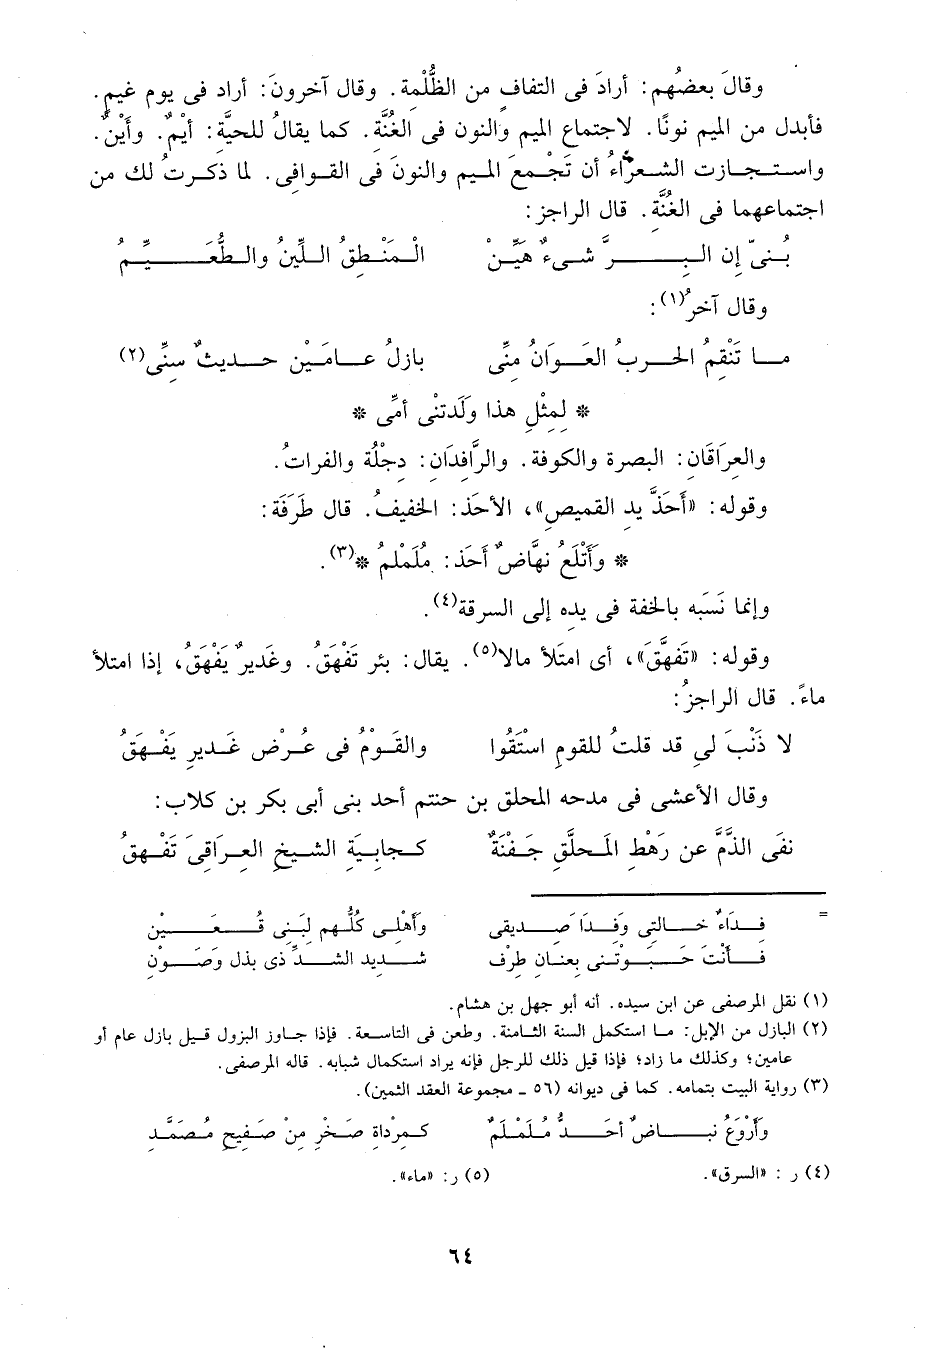 وقالَ بعضُهم: أرادَ فى التفافٍ من الظُّلْمة. وقال آخرونَ: أراد فى يوم غيمٍ.
فأبدل من الميم نونًا. لاجتماع الميم والنون فى الغُنَّة. كما يقالُ للحيَّة: أيْمٌ. وأَيْنٌ.
واستجازت الشعراءُ أن تَجْمعَ الميم والنونَ فى القوافى. لما ذكرتُ لك من
اجتماعهما فى الغُنَّة. قال الراجز:
بُنىّ إن البرَّ شىءٌ هَيِّنْ المَنْطِقُ اللَّيِّنُ والطُّعَيِّمُ
وقال آخرُ(١):
ما تَنْقِمُ الحربُ العَوَانُ مِنِّى بازلُ عامَيْن حديثٌ سنِّى(٢)
* لِمِثْلِ هذا ولَدتنْى أمِّى *
والعراقَان: البصرة والكوفة. والرَّافدَان: دجْلة والفراتُ.
وقوله: «أَحَذَّ يد القميص»، الأحَذ: الخفيفُ. قال طَرَفَة:
* وَأَتْلَعُ نهَّاضٌ أَحَذ: مُلَمْلمُ *(٣).
وإنما نَسَبَه بالخفة فى يده إلى السرقة(٤).
وقوله: «تَفَهَّقَ»، أى امتَلأ مالا(٥). يقال: بئر تَفْهَقُ. وغَديرٌ يَفْهَقُ، إذا امتلأ
ماءً. قال الراجزُ:
لا ذَنْبَ لي قد قلتُ للقومِ اسْتَقُوا والقَوْمُ فى عُرْضِ غَديرٍ يَفْهقُ
وقال الأعشى فى مدحه المحلق بن حنتم أحد بنى أبى بكر بن كلاب:
نفَى الذَّمَّ عن رَهْطِ المَحلَّقِ جَفْنَةٌ كجابيَةِ الشيخِ العراقىَ تَفْهقُ
= فداءٌ خالتى وفِدًا صديقى وأَهْلى كلُّهم لبَنى قُعَيْن
فأنْتَ حَبَوْتنى بعنان طِرْف شديد الشدِّ ذى بذل وصَوْن
(١) نقل المرصفى عن ابن سيده. أنه أبو جهل بن هشام.
(٢) البازل من الإبل: ما استكمل السنة الثامنة. وطعن فى التاسعة. فإذا جاوز البزول قيل بازل عام أو
عامين؛ وكذلك ما زاد؛ فإذا قيل ذلك للرجل فإنه يراد استكمال شبابه. قاله المرصفى.
(٣) رواية البيت بتمامه. كما فى ديوانه (٥٦ ـ مجموعة العقد الثمين).
وَأَرْوَعُ نباضٌ أحَذُّ مُلَمْلَمٌ كمِرْداة صَخْرٍ مِنْ صَفيحٍ مُصَمَّد
(٤) ر : «السرق». (٥) ر: «ماء».
٦٤